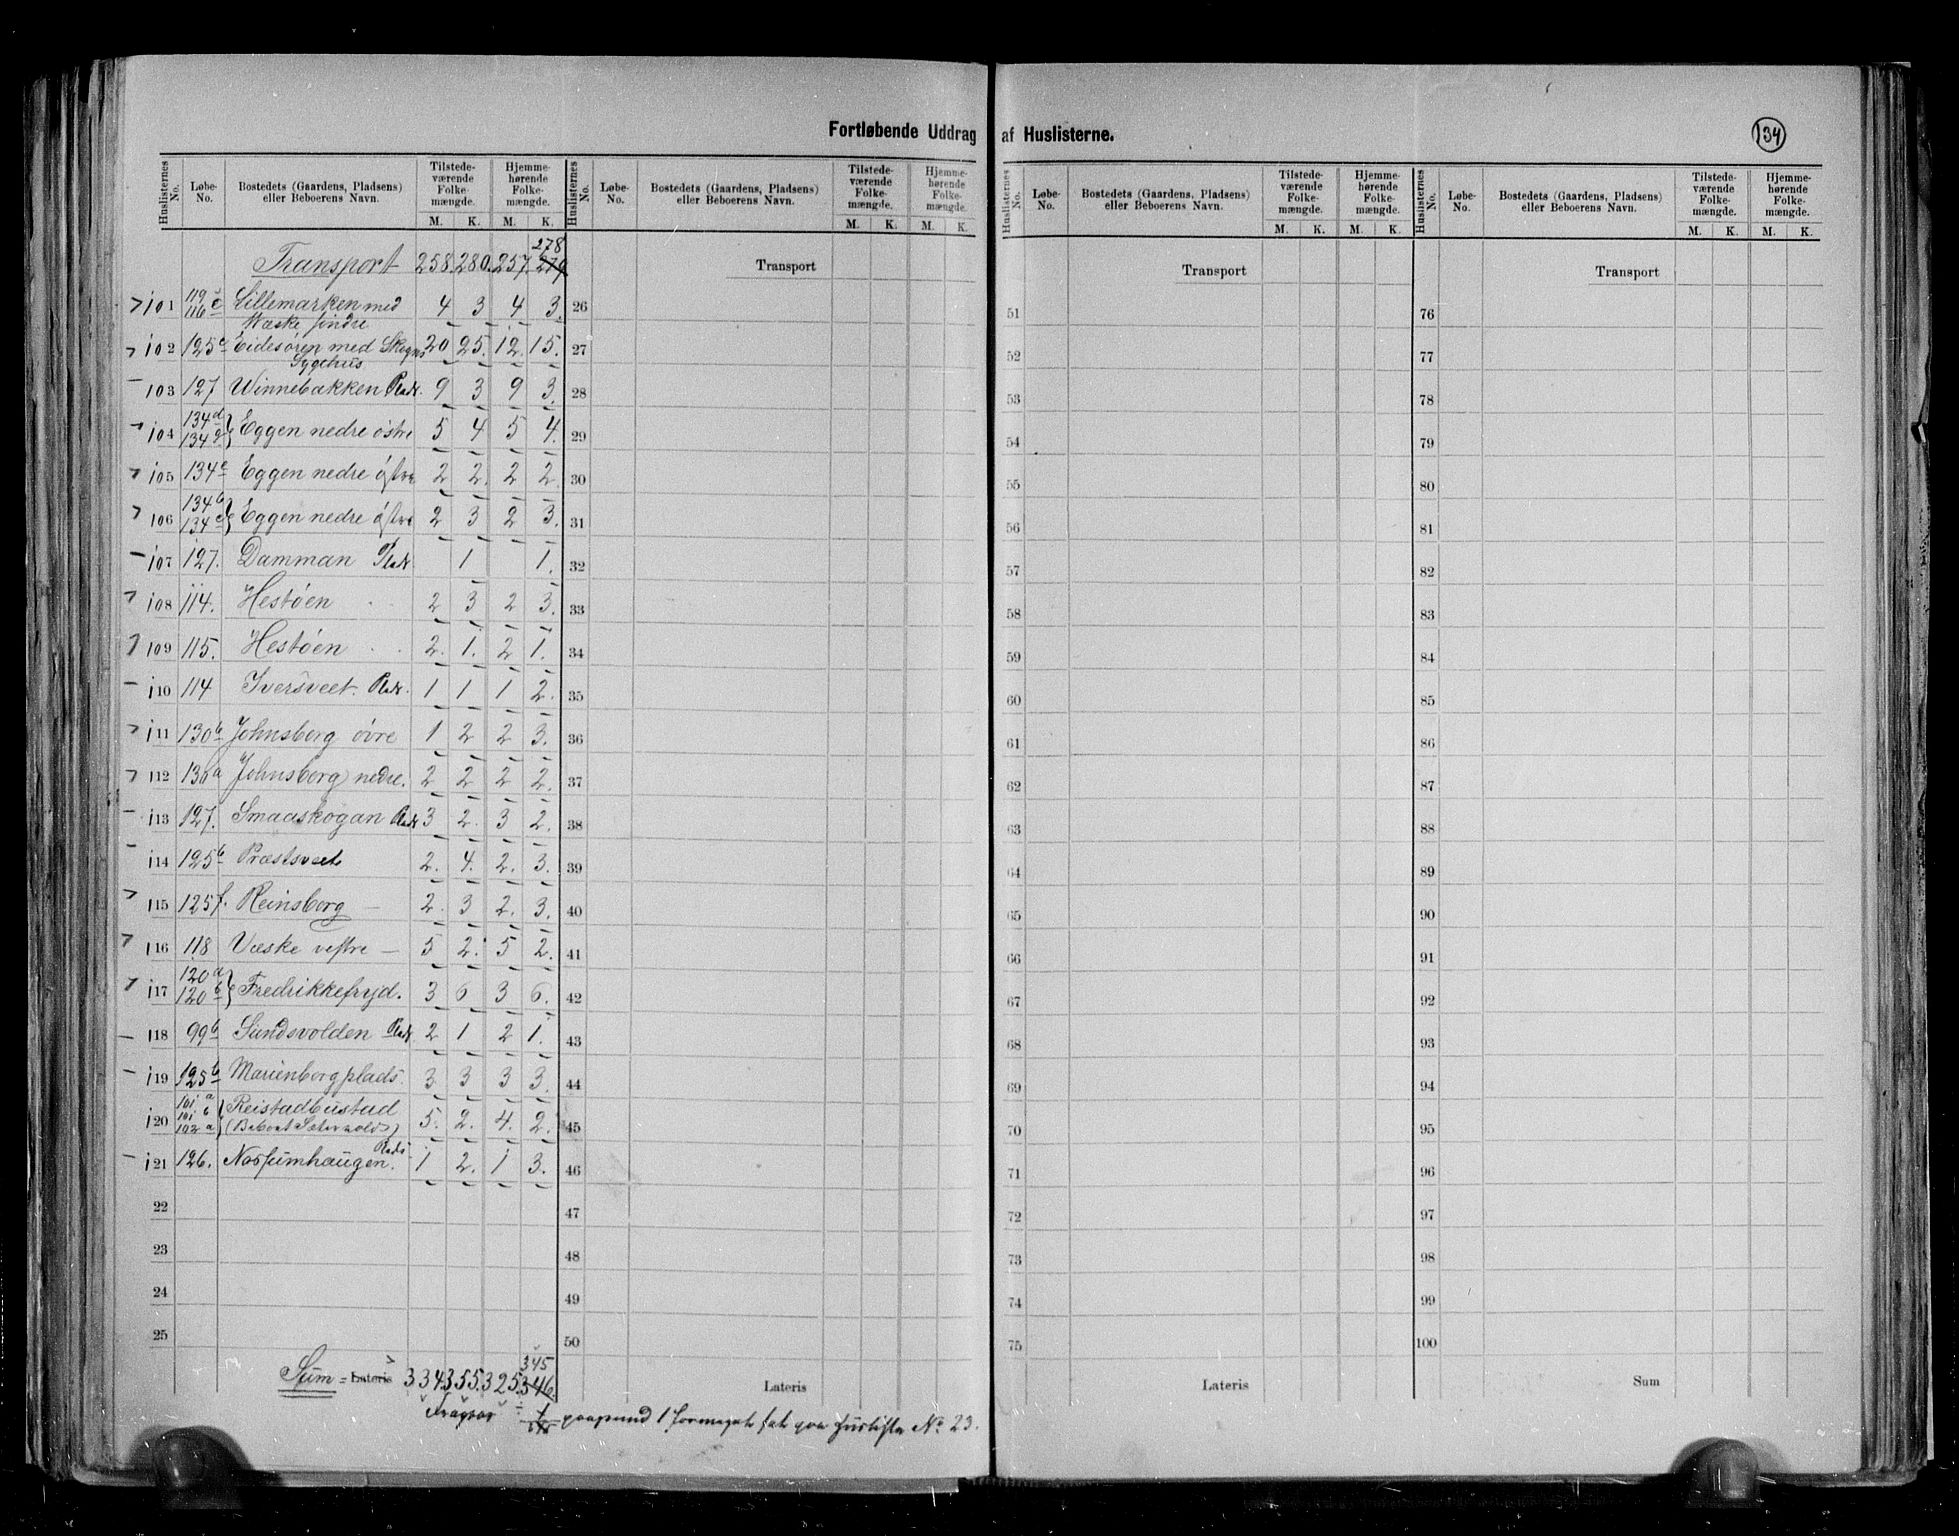 Fortløbende Uddrag af Huslisterne.
134
Huslisternes No. Løbe-No. Bostedets (Gaardens, Pladsens) eller Beboerens Navn. Tilstedeværende Folkemængde. M. K. Hjemmehørende Folkemængde. M. K.
278
Transport 258. 280. 257. 279
101 119c 116c Lillemarken med Væske søndre 4 3 4 3.
102 125c Eidesøren med Skogns Sygehus 20 25. 12. 15.
103 127 Winnebakken Plads. 9 3 9 3.
104 134d 134g Eggen nedre østre 5 4 5 4.
105 134e Eggen nedre østre 2 2. 2 2.
106 134b 134c Eggen nedre østre 2 3 2 3.
107 127. Damman Plads 1 1.
108 114. Hestøen 2 3 2 3.
109 115. Hestøen 2. 1. 2 1.
110 114 Iversveet. Plads. 1 1 1 2.
111 130b Johnsborg øvre 1 2 2 3.
112 130a Johnsborg nedre. 2 2 2 2.
113 127. Smaaskogan Plads 3 2. 3 2.
114 125b Præstsveet 2. 4. 2. 3.
115 125f. Reinsborg 2. 3 2. 3.
116 118 Væske vestre 5 2. 5 2.
117 120a 120b Fredrikkefryd. 3 6 3 6.
118 99b Sundsvolden Plads 2 1 2 1.
119 125b Marienborgplads. 3 3 3 3.
120 101a 101c 102a Reistadbustad 5. 2. 4. 2.
121 126. Nossumhaugen. Plads 1 2. 1 3.
22
23
24
25
345
Sum = Lateris 334. 355. 325. 346.
paagrund 1 formeget sat paa Husliste No 23.
Huslisternes No. Løbe-No. Bostedets (Gaardens, Pladsens) eller Beboerens Navn. Tilstedeværende Folkemængde. M. K. Hjemmehørende Folkemængde. M. K.
Transport
26
27
28
29
30
31
32
33
34
35
36
37
38
39
40
41
42
43
44
45
46
47
48
49
50
Lateris
Huslisternes No. Løbe-No. Bostedets (Gaardens, Pladsens) eller Beboerens Navn. Tilstedeværende Folkemængde. M. K. Hjemmehørende Folkemængde. M. K.
Transport
51
52
53
54
55
56
57
58
59
60
61
62
63
64
65
66
67
68
69
70
71
72
73
74
75
Lateris
Huslisternes No. Løbe-No. Bostedets (Gaardens, Pladsens) eller Beboerens Navn. Tilstedeværende Folkemængde. M. K. Hjemmehørende Folkemængde. M. K.
Transport
76
77
78
79
80
81
82
83
84
85
86
87
88
89
90
91
92
93
94
95
96
97
98
99
100
Sum